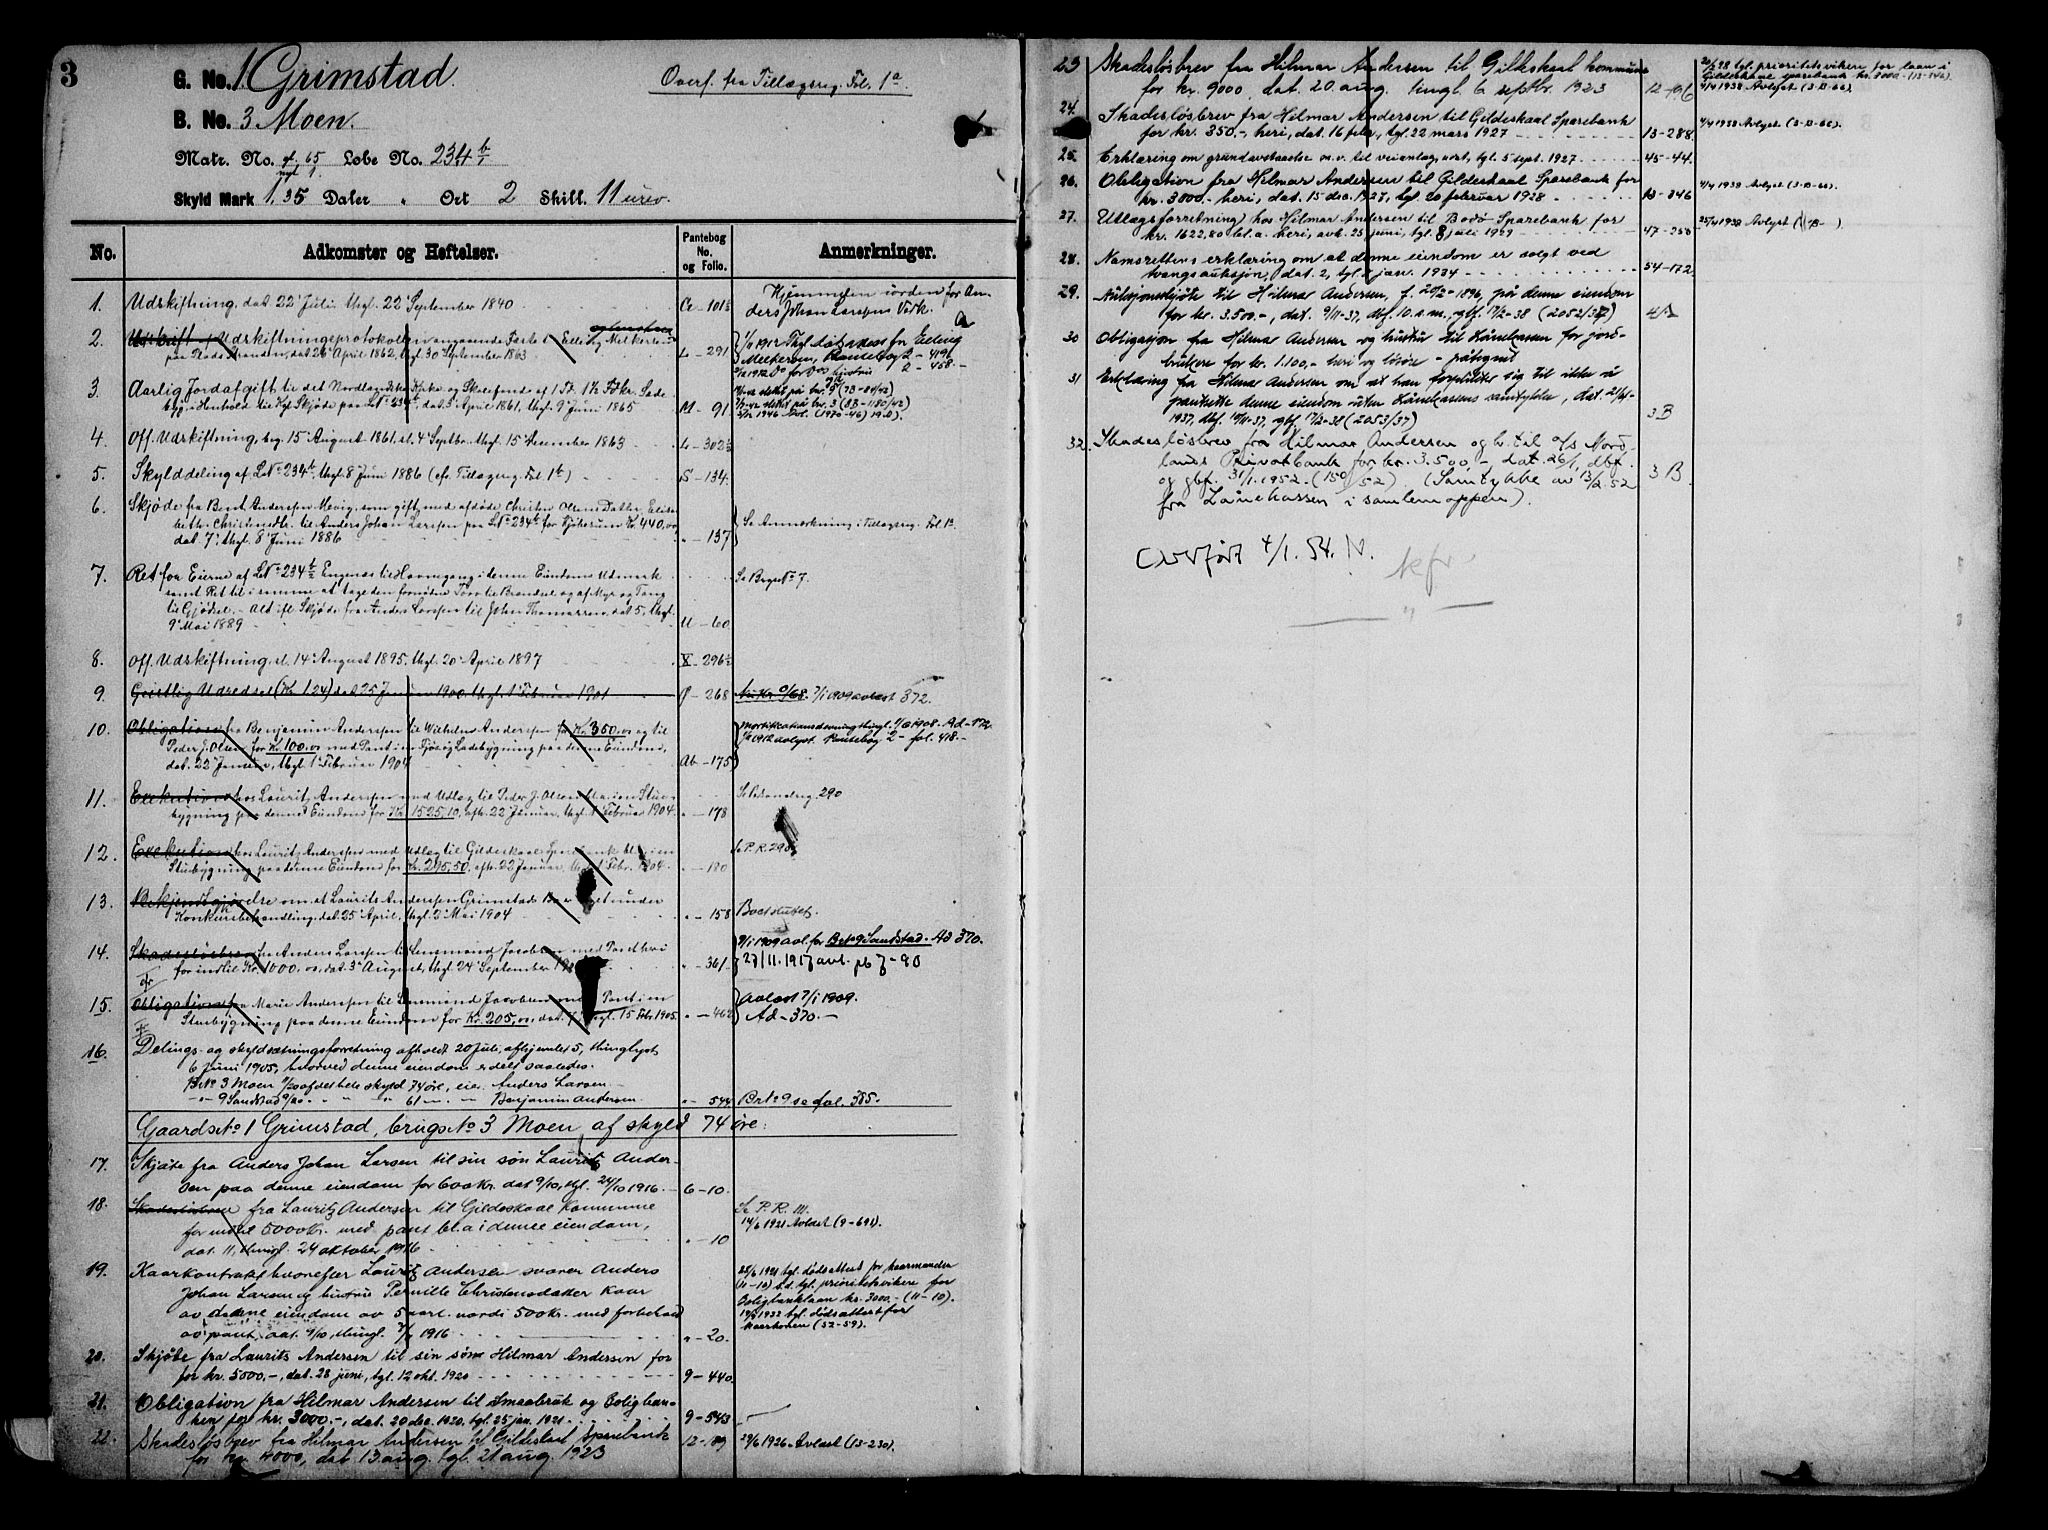 3
G. No. 1 Grimstad.
Overf. fra Tillægsreg. Fol. 1a.
B. No. 3 Moen.
Matr. No. gl. 65 Løbe No. 234 b/1
nyt 1.
Skyld Mark 1,35 Daler " Ort 2 Skill. 11 urev.
No. Adkomster og Heftelser. Pantebog No. og Folio. Anmerkninger.
1. Udskiftning, dat. 22 Juli, thgl. 22 September 1840 Cc-101½
Hjemmelen i orden for Anders Johan Larssen Vedk.
2. Udskrift af Udskiftningsprotokollen angaaende Parkel
paa Strandranden, dat. 26 April 1862, thgl. 30 September 1863 L-291
3. Aarlig Jordafgift til det Nordlandske Kirke og Skolefond af
i Henhold til Kgl. Skjøde paa LNo 234b, dat. 3 April 1861, thgl. 9 Juni 1865 M-91
4. Off. Udskiftning, beg. 15 August 1861, sl. 4 Septbr., thgl. 15 December 1863 L-302½
5. Skylddeling af LNo 234b, thgl. 8 Juni 1886 (cfr. Tillægsreg. Fol. 1b) S-134.
6. Skjøde fra Bent Andersen Mevig, som gift med afdøde Christen Olsens Datter Elisa-
beth Christensdtr. til Anders Johan Larssen paa LNo 234b for Kjøbesum Kr. 440,00
dat. 7, thgl. 8 Juni 1886 "-137
Se Anmerkning i Tillægsreg. Fol. 1a.
7. Ret for Eierne af LNo 234 b/2 Engenes til Havnegang i denne Eiendoms Udmark
samt Ret til i samme at tage den fornødne Torv til Brændsel og af Myr og Tang
til Gjødsel. - Alt ifl. Skjøde fra Anders Larssen til John Thomassen, dat. 5, thgl.
9 Mai 1889 U-60
Se Brgs No 7.
8. Off. Udskiftning, sl. 14 August 1895, thgl. 20 April 1897 X-296½
9. Geistlig Udredsel (Kr. 1,24) dat. 25 Januar 1900, thgl. 1 Februar 1901 P-268
7/1 1909 avlæst 372.
10. Obligation fra Benjamin Andersen til Wilhelm Andersen for Kr. 350,00 og til
Peder J. Olsen for Kr. 100,00 med Pant i en Fjøs og Ladebygning paa denne Eiendom,
dat. 22 Januar, thgl. 1 Februar 1904 Ab-175
1912 avlyst. Pantebog 2 - fol. 418.
11. Execution hos Lauritz Andersen med Udlæg til Peder J. Olsen bl.a. i en Stue-
bygning paa denne Eiendom for Kr. 1525,10, afh. 22 Januar, thgl. 1 Februar 1904. "-178
12. Execution hos Lauritz Andersen med Udlæg til Gildeskaal Sparebank bl.a. i en
Stuebygning paa denne Eiendom for Kr. 295,50, afh. 22 Januar, thgl. 1 Febr. 1904. "-180
Se P.R. 290
13. Bekjendtgjørelse om at Laurits Andersen Grimstads Bo er taget under
Konkursbehandling, dat. 25 April, thgl. 2 Mai 1904 "-158
Boet sluttet.
14. Skadesløsbrev fra Anders Larssen til Lensmand Jacobsen med Pant heri
for indtil Kr. 1000,00, dat. 3 August, thgl. 24 September "-361
9/1 1909 avl. for BrNo 9 Sandstad. Ad 370.
27/11.1917 avl. pb 7-90
15. Obligation fra Marie Andersen til Lensmand Jacobsen med Pant i en
Stuebygning paa denne Eiendom for Kr. 205,00, dat. thgl. 15 Febr. 1905. "-462
Avlæst 7/1 1909.
Ad-370.-
16. Delings- og skyldsætningsforretning afholdt 20 Juli, afhjemlet 5, thinglyst
6 Juni 1905, hvorved denne eiendom er delt saaledes.
BNo 3 Moen 11/20 af det hele skyld 74 øre, eier Anders Larsen
-"- 9 Sandstad 9/20 " " " 61 " " Benjamin Andersen. "-544
Br No 9 se fol. 385.
Gaards No 1 Grimstad, brugs No 3 Moen af skyld 74 øre:
17. Skjøte fra Anders Johan Larsen til sin søn Lauritz Ander-
sen paa denne eiendom for 600 kr. dat 9/10, tgl. 24/10 1916. 6-10.
18. Skadesløsbrev fra Lauritz Andersen til Gildeskaal Kommune
for indtil 5000 kr. med pant bl.a. i denne eiendom,
dat. 11, thingl. 24 oktober 1916 "-10
Se P.R. III.
14/6 1921 Avlæst (9-691).
19. Kaarkontrakt hvorefter Lauritz Andersen svarer Anders
Johan Larsen og hustru Pernille Christensdatter kaar
av denne eiendom av 5 aarl. værdi 500 kr. med forbehold
av pant, dat. 9/10, thingl. 1916 "-20.
tgl. dødsattest for kaarmanden
(11-10) s.d. tgl. prioritetsvikere for
Boligbanklaan kr. 3000,- (11-10).
1932 tgl. dødsattest for
kaarkonen (52-59).
20. Skjøte fra Laurits Andersen til sin søn Hilmar Andersen for
for kr. 5000,-, dat. 28 juni, tgl. 12 okt. 1920 9-440.
21. Obligation fra Hilmar Andersen til Smaabruk og Boligban-
ken for kr. 3000,-, dat. 20 dec. 1920, tgl. 25 jan. 1921 9-543
22. Skadesløsbrev fra Hilmar Andersen til Gildeskaal Sparebank
for kr. 4000, dat. 13 aug. tgl. 21 aug. 1923 12-89
29/6 1926 Avlæst (13-230).
23 Skadesløsbrev fra Hilmar Andersen til Gildeskaal kommune
for kr. 9000, dat. 20 aug. tingl. 6 septbr. 1923 12-96
tgl. prioritetsvikere for laan i
Gildeskaal sparebank kr. 3000.- (13-346).
4/4 1938 Avlyst (3-B-66).
24. Skadesløsbrev fra Hilmar Andersen til Gildeskaal Sparebank
for kr. 350.- heri, dat. 16 febr., tgl. 22 mars 1927 13-288.
4/4 1938 Avlyst (3-B-66).
25. Erklæring om grundavstaaelse m.v. til veianlæg, udat, tgl. 5 sept. 1927 45-44.
26. Obligation fra Hilmar Andersen til Gildeskaal Sparebank for
kr. 3000.- heri, dat. 15 dec. 1927, tgl. 20 februar 1928 13-346
4/4 1938 Avlyst (3-B-66).
27. Utlægsforretning hos Hilmar Andersen til Bodø Sparebank for
kr. 1622,80 bl.a. heri, avh. 25 juni, tgl. 8 juli 1929 47-250
25/4 1938 Avlyst
28. Namsrettens erklæring om at denne eiendom er solgt ved
tvangsauksjon, dat. 2, tgl. jan. 1934 54-172
29. Auksjonsskjøte til Hilmar Andersen, f. 20/2-1896, på denne eiendom
for kr. 3.500.-, dat. 9/11-37, dbf. 10. s.m., gbf. 17/2-38 (2052/37)
30 Obligasjon fra Hilmar Andersen og hustru til Lånekassen for jord-
brukere for kr. 1.100,- heri og løsøre - påtegnet
31 Erklæring fra Hilmar Andersen om at han forplikter sig til ikke å
pantsette denne eiendom uten Lånekassens samtykke, dat.
1937, dbf. 10/11-37, gbf. 17/2-38 (2053/37) 3B
32. Skadesløsbrev fra Hilmar Andersen og h. til a/s Nord-
lands Privatbank for kr. 3.500,- dat. 26/1, dbf.
og gbf. 31/1. 1952. (150/52). (Samtykke av 13/2.52
fra Lånekassen i samlemappen). 3B
Overført 4/1. 54. N.